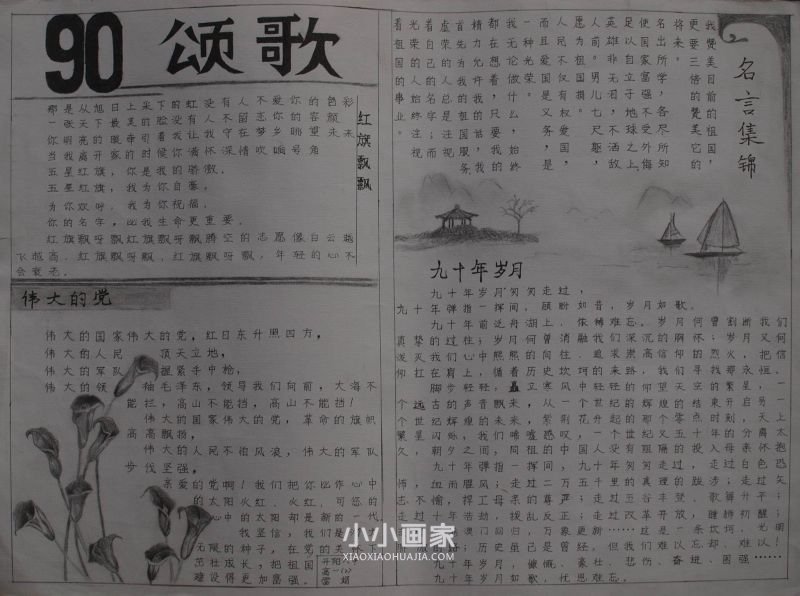 90 颂歌
红旗飘飘
那是从旭日上采下的虹没有人不爱你的色彩
一张天下最美的脸没有人不留恋你的容颜
你明亮的眼睛引着我让我守在梦乡眺望未来
当我离开家的时候你满怀深情吹响号角
五星红旗，你是我的骄傲，
五星红旗，我为你自豪，
为你欢呼，我为你祝福，
你的名字，比我生命更重要，
红旗飘呀飘红旗飘呀飘腾空的志愿像白云越
飞越高，红旗飘呀飘，红旗飘呀飘，年轻的心不
会衰老。
伟大的党
伟大的国家伟大的党，红日东升照四方，
伟大的人民 顶天立地，
伟大的军队 握紧手中枪，
伟大的领 袖毛泽东，领导我们向前，大海不
能拦，高山不能挡，高山不能挡！
伟大的国家伟大的党，革命的旗帜
高高飘扬，
伟大的人民不怕风浪，伟大的军队
步伐坚强。
亲爱的党啊！我们把你比作心中
的太阳火红、火红，可您的
心中的太阳却是新的一代
我坚信，我们是
无限的种子，在党的
茁壮成长，把祖国
建设得更加富强。
名言集锦
我赞美目前的祖国，
更要三倍的赞美它的
将来。
名出所学，各尽所知
使国家富强不受外侮
足以自立于地球之上
英雄非无泪，不洒敌
人前。男儿七尺躯，
愿为祖国捐。
人民不仅有权爱国，
而且爱国是义务，是
一种光荣。
我无论做什么，始终
都在想着，只要我的
精力允许我的话，我
首先为我的祖国服务
虚荣的人总是注视
着自己的名字；而
光荣的人始终注视
着祖国的事业。
九十年岁月
九十年岁月匆匆走过，
九十年弹指一挥间，顾盼如昔，岁月如歌。
九十年前泛舟湖上，依稀难忘。岁月何曾割断我们
真挚的过往；岁月何曾消融我们深沉的胸怀；岁月又何曾
泼灭我们心中熊熊的向往、追求崇高信仰的烈火，把信
仰扛在肩上，循着历史坎坷的来路，我们寻找那永恒。
脚步轻轻，矗立寒风中轻轻的仰望天空的繁星，一
个远古的声音飘来，从一个世纪的辉煌的结束开启另一
个世纪辉煌的未来，紫荆花开起的那个零点时刻，天上
繁星闪烁，我们唏嘘感叹，一个世纪又五十年的分离太
久，朝夕之间，同祖的中国人没有阻隔的投入母亲怀抱
九十年弹指一挥间，九十年匆匆走过，走过白色恐
怖，血雨腥风；走过二万五千里的真理的跋涉；走过矢
志不懈，捍卫母亲的尊严；走过五谷丰登、歌舞升平；
走过十年浩劫，拨乱反正；走过改革开放，雄狮初醒；
澳门回归，万象更新……这是一条坎坷、光明
历史虽已是曾经，但我们难以忘却、难以！
九十年岁月，慷慨、豪壮、悲伤、奋进、图强……
九十年岁月如歌，忧思难忘。
小小画家
XIAOXIAOHUAJIA.COM